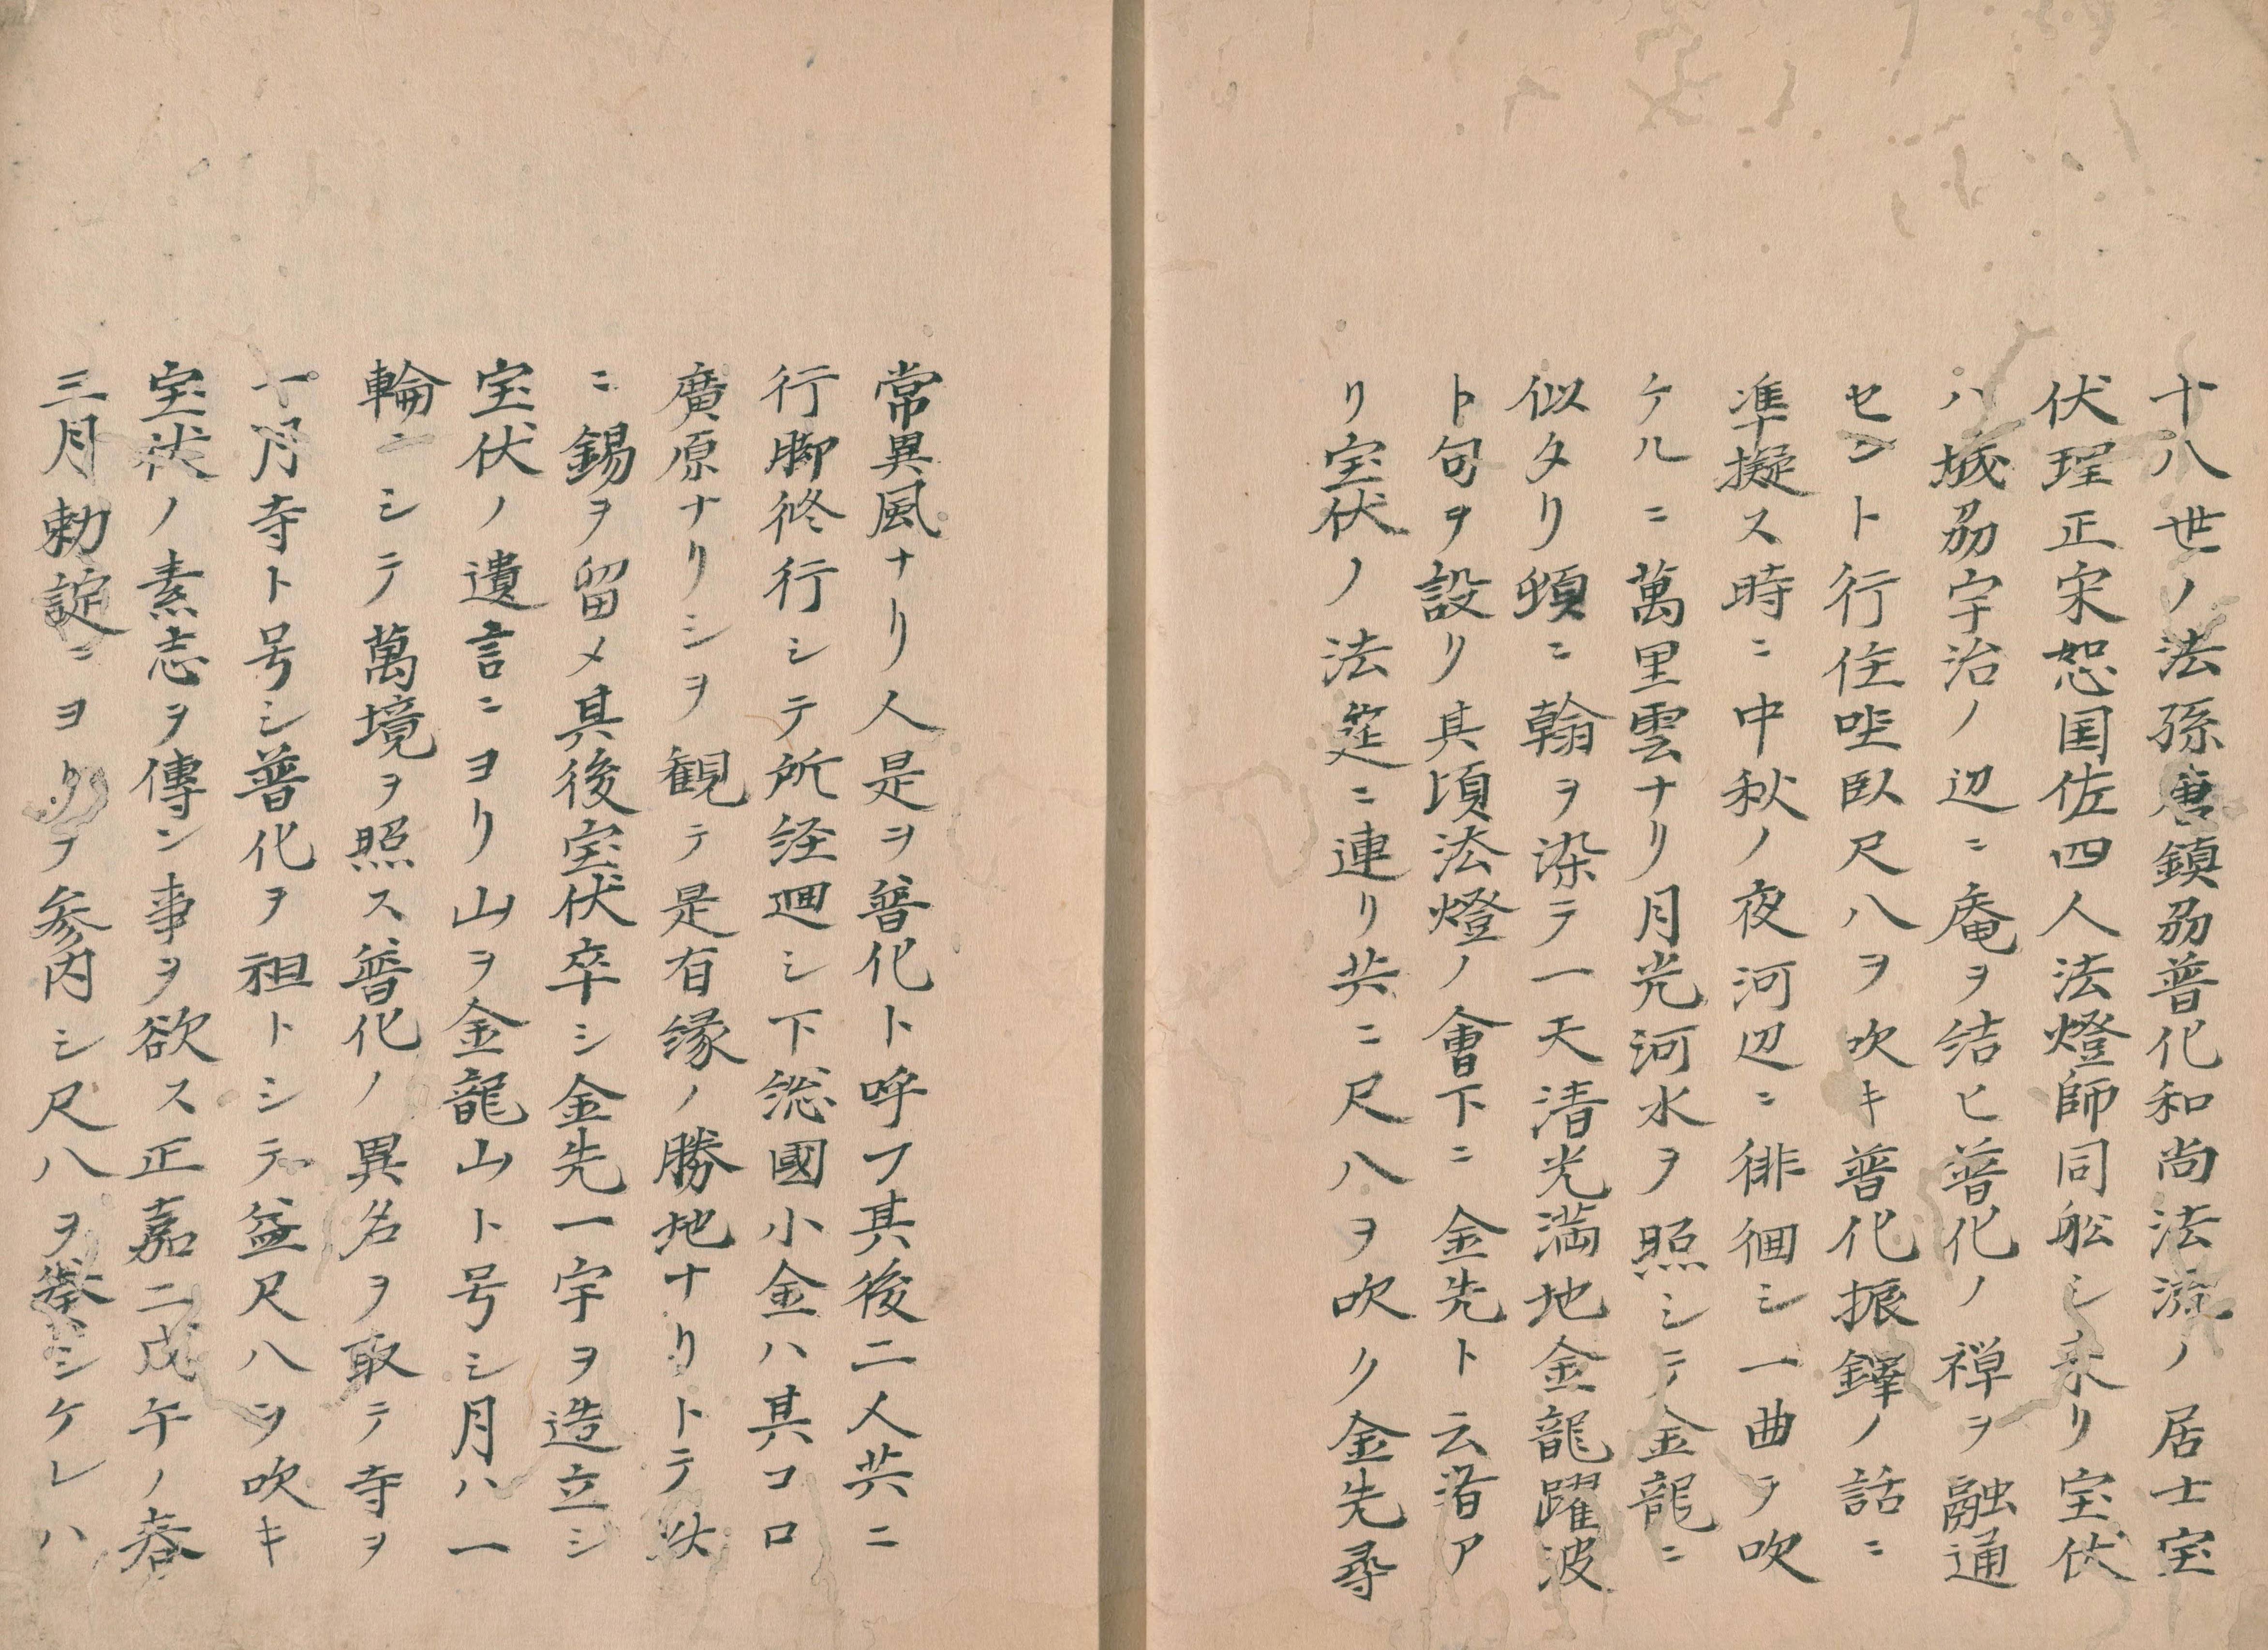 十八世ノ法孫唐鎮刕普化和尚法流ノ居士宝
伏理正宋恕国佐四人法燈師同舩シ来リ宝伏
ハ城刕宇治ノ辺ニ庵ヲ結ヒ普化ノ禅ヲ融通
セント行住㘴臥尺八ヲ吹キ普化振鐸ノ話ニ
準擬ス時ニ中秋ノ夜河辺ニ徘徊シ一曲ヲ吹
ケルニ萬里雲ナリ月光河水ヲ照シテ金龍ニ
似タリ頻ニ翰ヲ染テ一天清光満地金龍躍波
ト句ヲ設リ其頃法燈ノ會下ニ金先ト云者ア
リ宝伏ノ法莚ニ連リ共ニ尺八ヲ吹ク金先尋
常異風ナリ人是ヲ普化ト呼フ其後二人共ニ
行脚修行シテ所経廻シ下総國小金ハ其コロ
廣原ナリシヲ観テ是有縁ノ勝地ナリトテ此
ニ錫ヲ留メ其後宝伏卒シ金先一宇ヲ造立シ
宝伏ノ遺言ニヨリ山ヲ金龍山ト号シ月ハ一
輪ニシテ萬境ヲ照ス普化ノ異名ヲ取テ寺ヲ
一月寺ト号シ普化ヲ祖トシテ益尺八ヲ吹キ
宝伏ノ素志ヲ傳ン事ヲ欲ス正嘉二戊午ノ春
三月勅諚ニヨリテ参内シ尺八ヲ奏シケレハ